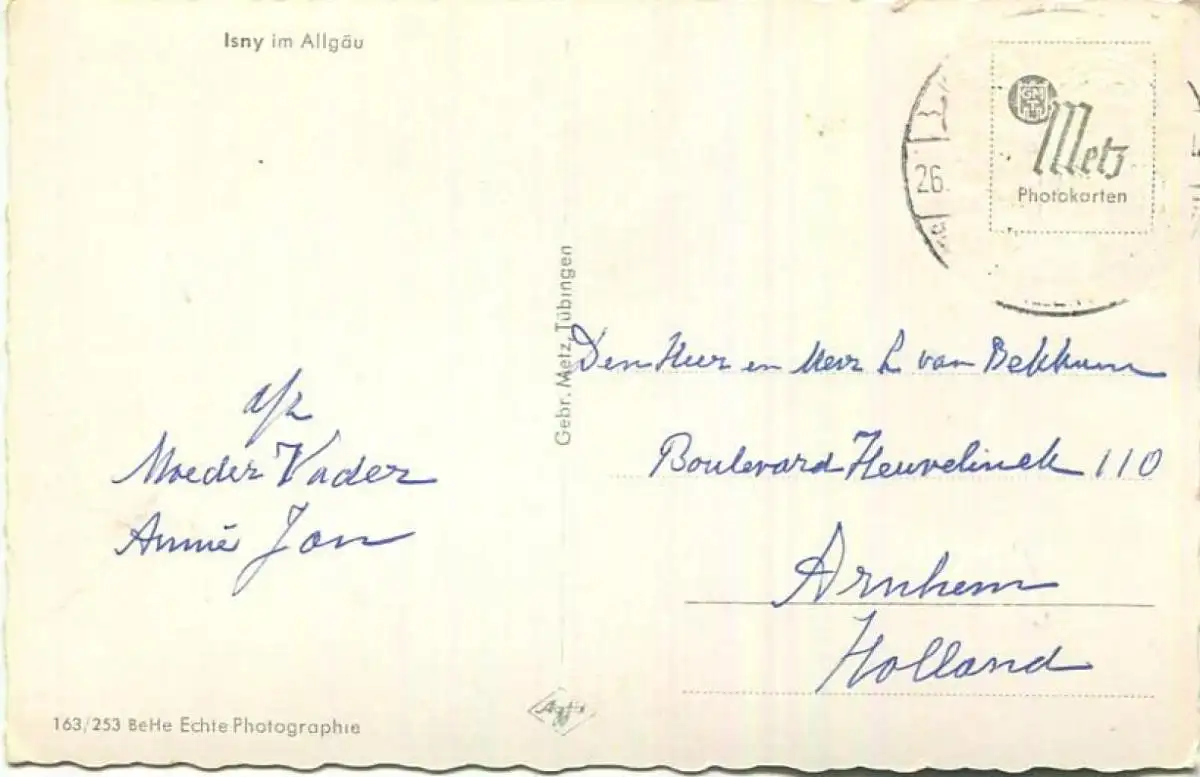 Isny im Allgäu
26.
GM
Metz
Photokarten
Gebr. Metz, Tübingen
Den Heer en Mevr L van Bekkum
Boulevard Heuvelinck 110
Arnhem
Holland
afz
Moeder Vader
Annie Jan
163/253 BeHe Echte Photographie
Agfa